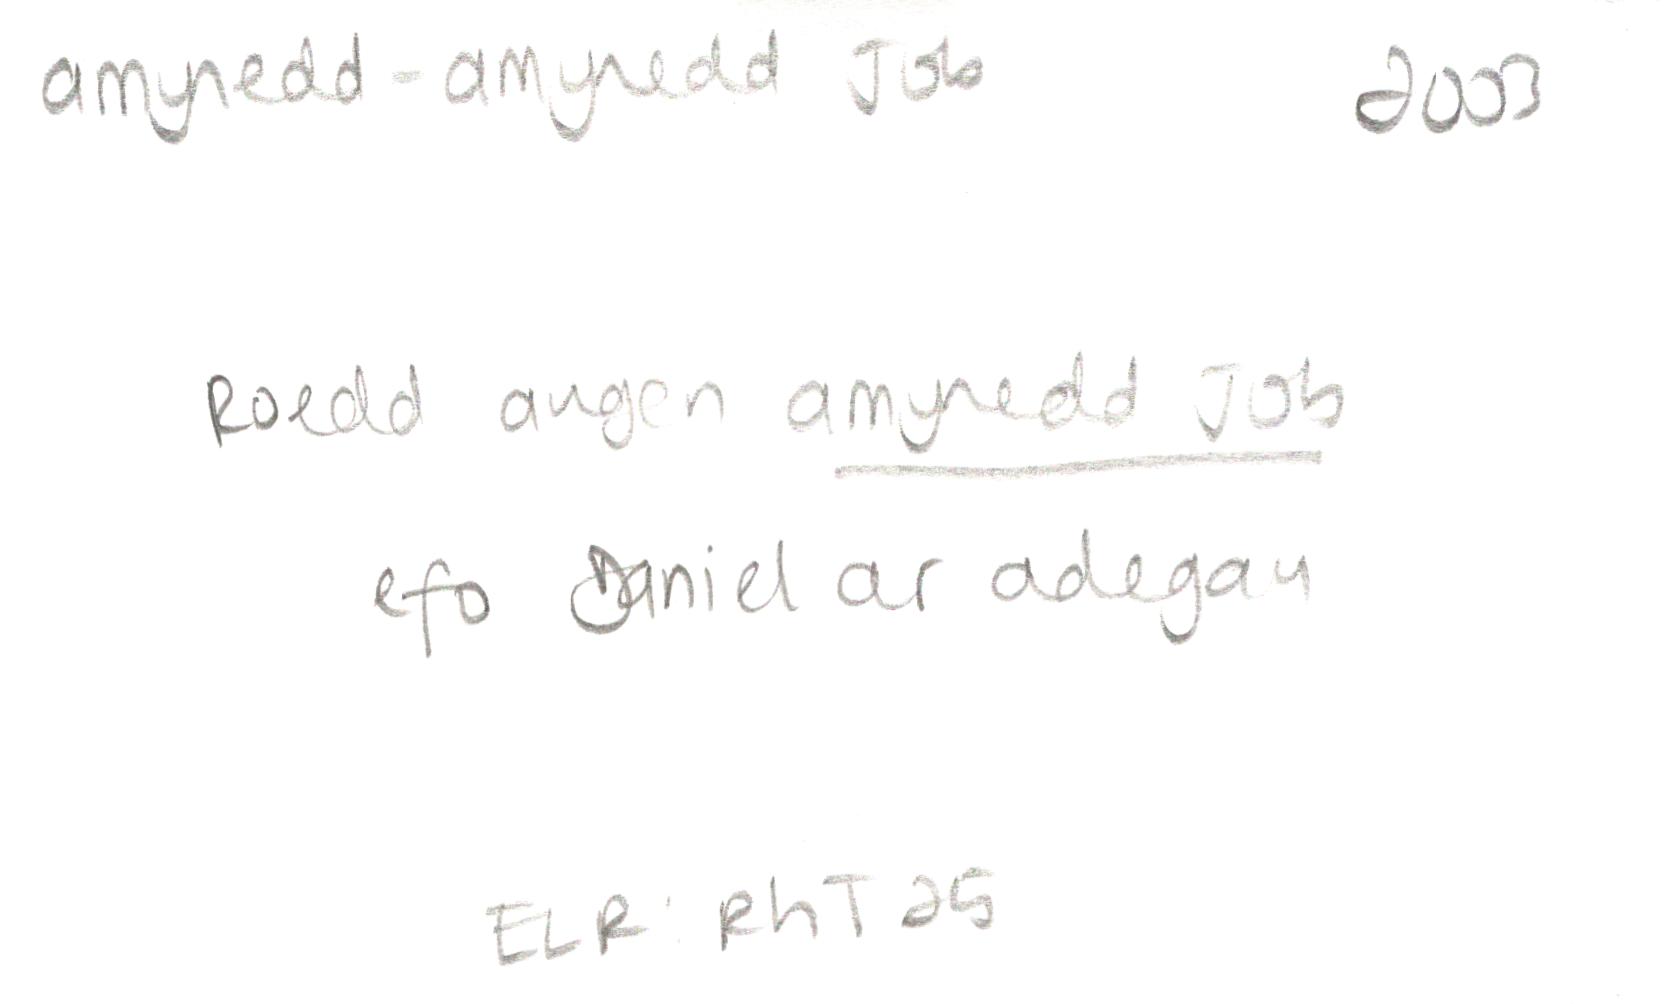 amynedd - amynedd Job 2003
Roedd angen amynedd Job
efo Daniel ar adegau
ELR: RhT 25